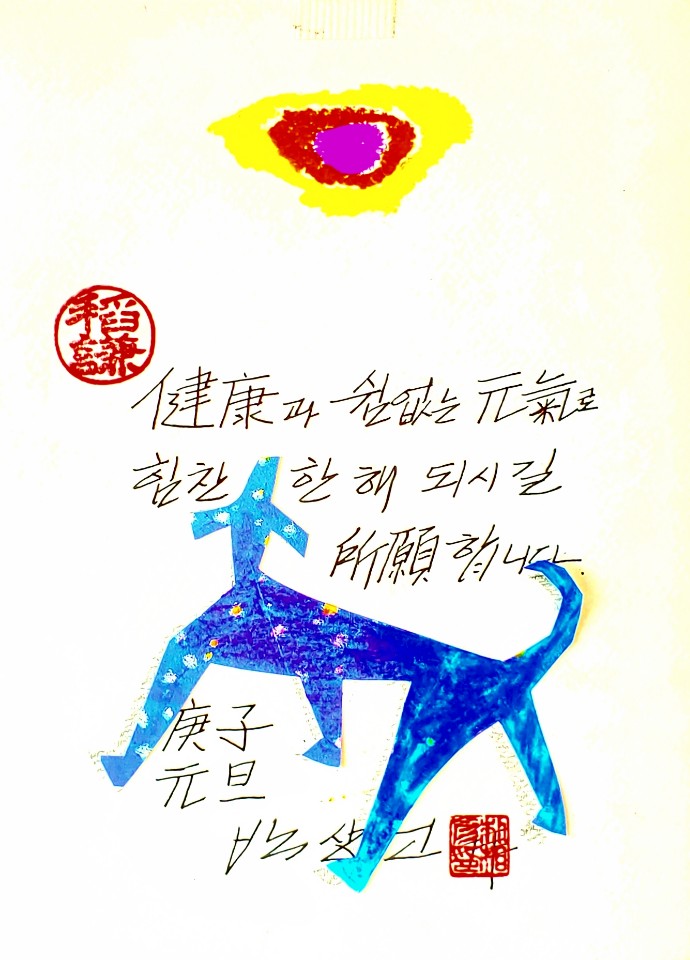 稻
謙
健康과 쉼없는 元氣로
힘찬 한 해 되시길
所願합니다.
庚子
元旦